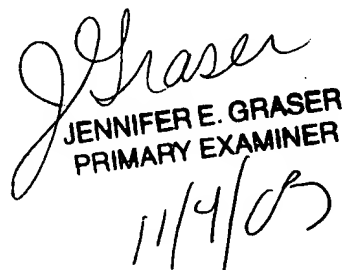 JGraser
JENNIFER E. GRASER
PRIMARY EXAMINER
11/4/05